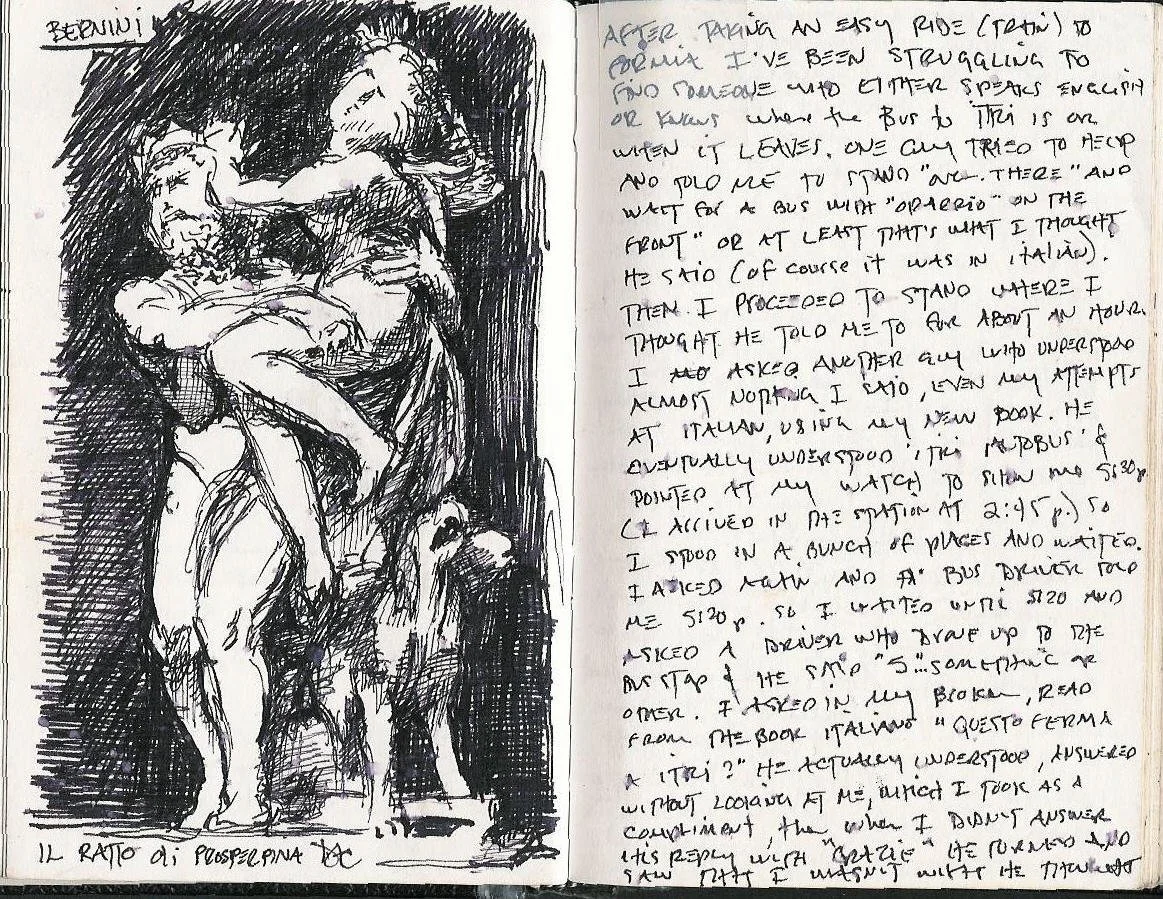 BERNINI
IL RATTO di PROSPERPINA
AFTER TAKING AN EASY RIDE (TRAIN) TO
FORMIA I'VE BEEN STRUGGLING TO
FIND SOMEONE WHO EITHER SPEAKS ENGLISH
OR KNOWS where the BUS to ITRI IS OR
WHEN IT LEAVES. ONE GUY TRIED TO HELP
AND TOLD ME TO STAND "THERE" AND
WAIT FOR A BUS WITH "ORARRIO" ON THE
FRONT" OR AT LEAST THAT'S WHAT I THOUGHT
HE SAID (OF COURSE IT WAS IN iTALIAN).
THEN I PROCEEDED TO STAND WHERE I
THOUGHT HE TOLD ME TO FOR ABOUT AN HOUR.
I ASKED ANOTHER GUY WHO UNDERSTOOD
ALMOST NOTHING I SAID, EVEN MY ATTEMPTS
AT ITALIAN, USING MY NEW BOOK. HE
EVENTUALLY UNDERSTOOD 'ITRI AUTOBUS' &
POINTED AT MY WATCH TO SHOW ME 5:30p
(I ARRIVED IN THE STATION AT 2:45 p.) SO
I STOOD IN A BUNCH OF PLACES AND WAITED.
I ASKED AGAIN AND A BUS DRIVER TOLD
ME 5:20p. SO I WAITED UNTIL 5:20 AND
ASKED A DRIVER WHO DROVE UP TO THE
BUS STOP & HE SAID "5"...SOMETHING OR
OTHER. I ASKED IN MY BROKEN, READ
FROM THE BOOK ITALIANO "QUESTO FERMA
A ITRI?" HE ACTUALLY UNDERSTOOD, ANSWERED
WITHOUT LOOKING AT ME, WHICH I TOOK AS A
COMPLIMENT, then when I DIDN'T ANSWER
HIS REPLY WITH "GRAZIE" HE TURNED AND
SAW THAT I WASN'T WHAT HE THOUGHT